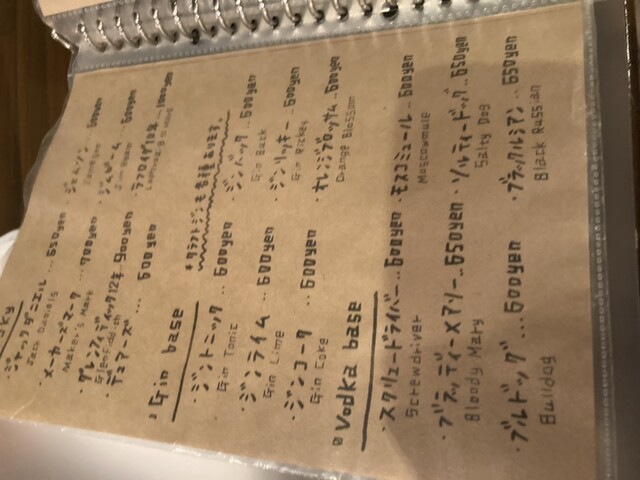 ky
・ジャックダニエル ... 650yen
Jack Daniels
・ジェムソン 600yen
Jameson
・メーカーズマーク ... 700yen
Maker's Mark
・ジムビーム ... 600yen
Jim Beam
・グレンフィディック12年 900yen
Glenfiddich
・ラフロイグ10年 ... 1000yen
・デュアーズ ... 600yen
Gin base
*クラフトジンも各種あります。
・ジントニック .. 600yen
Gin Tonic
・ジンバック .. 600yen
Gin Buck
・ジンライム .. 600yen
Gin Lime
・ジンリッキー .. 600yen
Gin Rickey
・ジンコーク .. 600yen
Gin Coke
・オレンジブロッサム .. 600yen
Orange Blossom
Vodka base
・スクリュードライバー .. 600yen
Screwdriver
・モスコミュール .. 600yen
Moscowmule
・ブラッディーメアリー .. 650yen
Bloody Mary
・ソルティードッグ .. 650yen
Salty Dog
・ブルドッグ ... 600yen
Bulldog
・ブラックルシアン .. 650yen
Black Russian